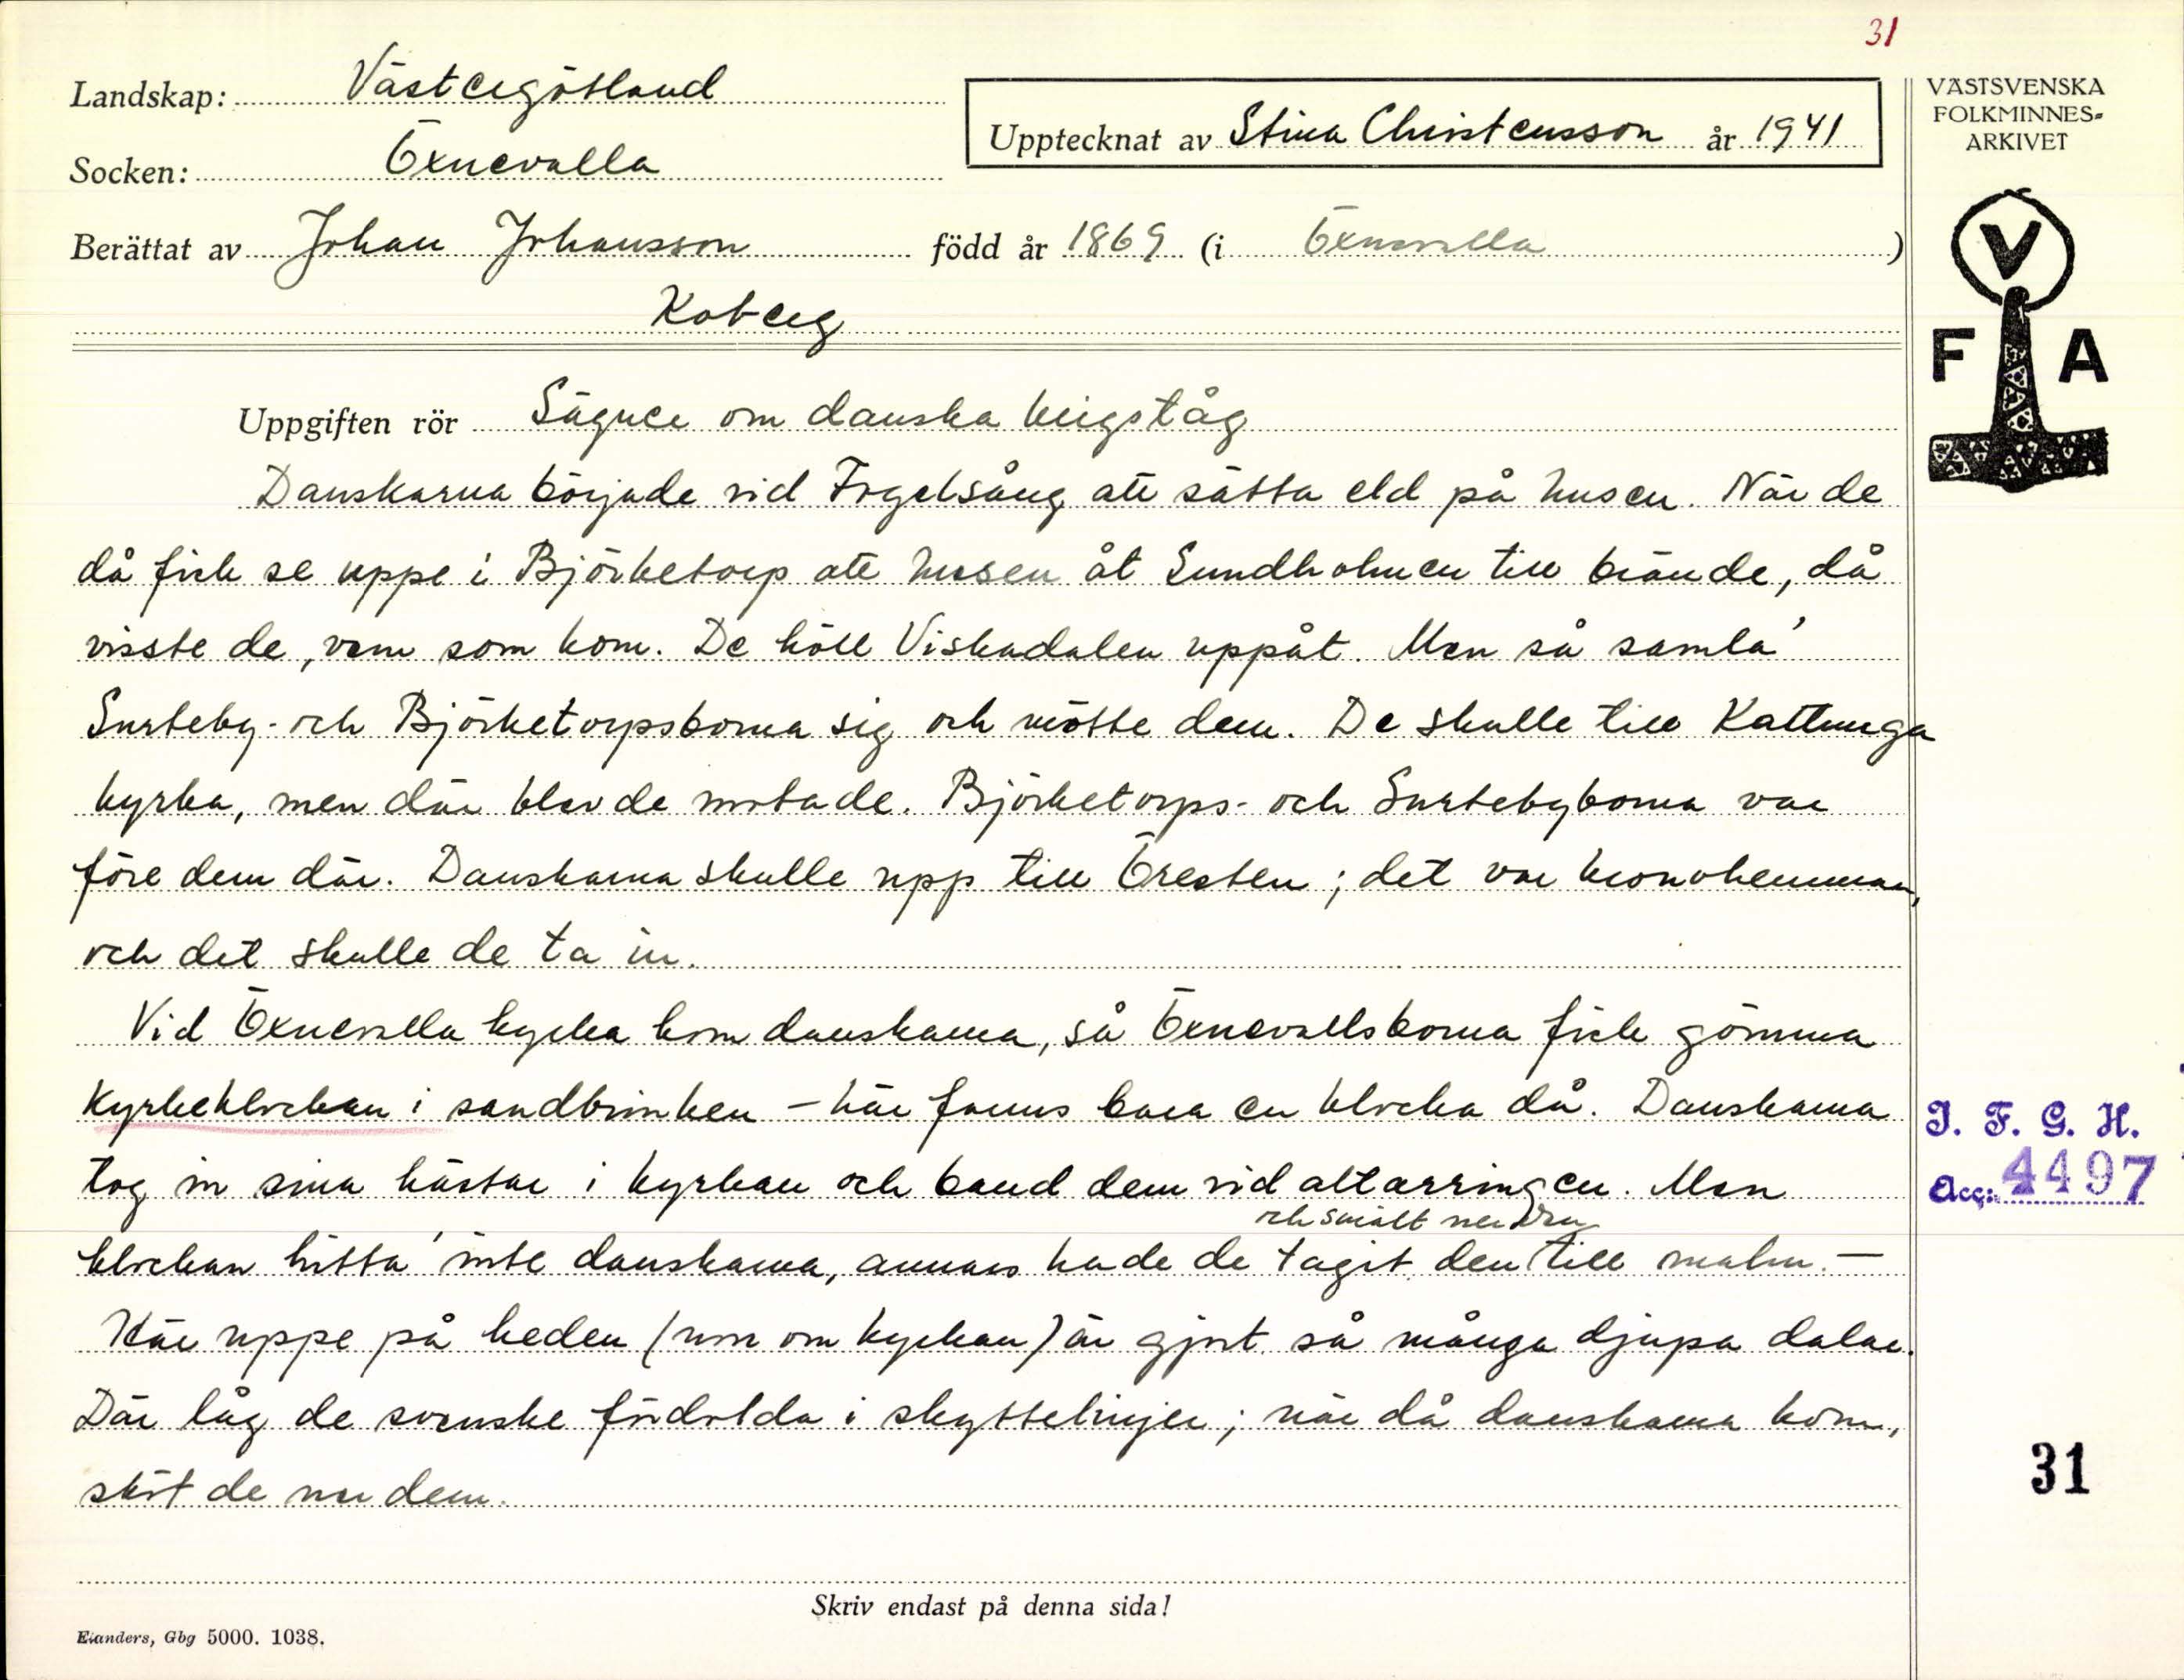 31
Landskap: Västergötland
Socken: Öxnevalla
Upptecknat av Stina Christensson år 1941
Berättat av Johan Johansson född år 1869 (i Öxnevalla)
Koberg
VÄSTSVENSKA
FOLKMINNES-
ARKIVET
V
F A
Uppgiften rör Sägner om danska krigståg
Danskarna började vid Fogelsång att sätta eld på husen. När de
då fick se uppe i Björketorp att husen åt Sundholmen till brände, då
visste de, vem som kom. De höll Viskadalen uppåt. Men så samla'
Surteby- och Björketorpsborna sig och mötte dem. De skulle till Kattunga
kyrka, men där blev de motade. Björketorps- och Surtebyborna var
före dem där. Danskarna skulle upp till Öresten; det var kronohemman,
och det skulle de ta in.
Vid Öxnevalla kyrka kom danskarna, så Öxnevallsborna fick gömma
kyrkeklockan i sandbrinken – här fanns bara en klocka då. Danskarna
tog in sina hästar i kyrkan och band dem vid altarringen. Men
och smält ner den
klockan hitta' inte danskarna, annars hade de tagit den till malm. –
Här uppe på heden (norr om kyrkan) är gjort så många djupa dalar.
Där låg de svenske fördolda i skyttelinjer; när då danskarna kom,
sköt de ner dem.
I. F. G. H.
Acc: 4497
31
Skriv endast på denna sida!
Elanders, Gbg 5000. 1038.